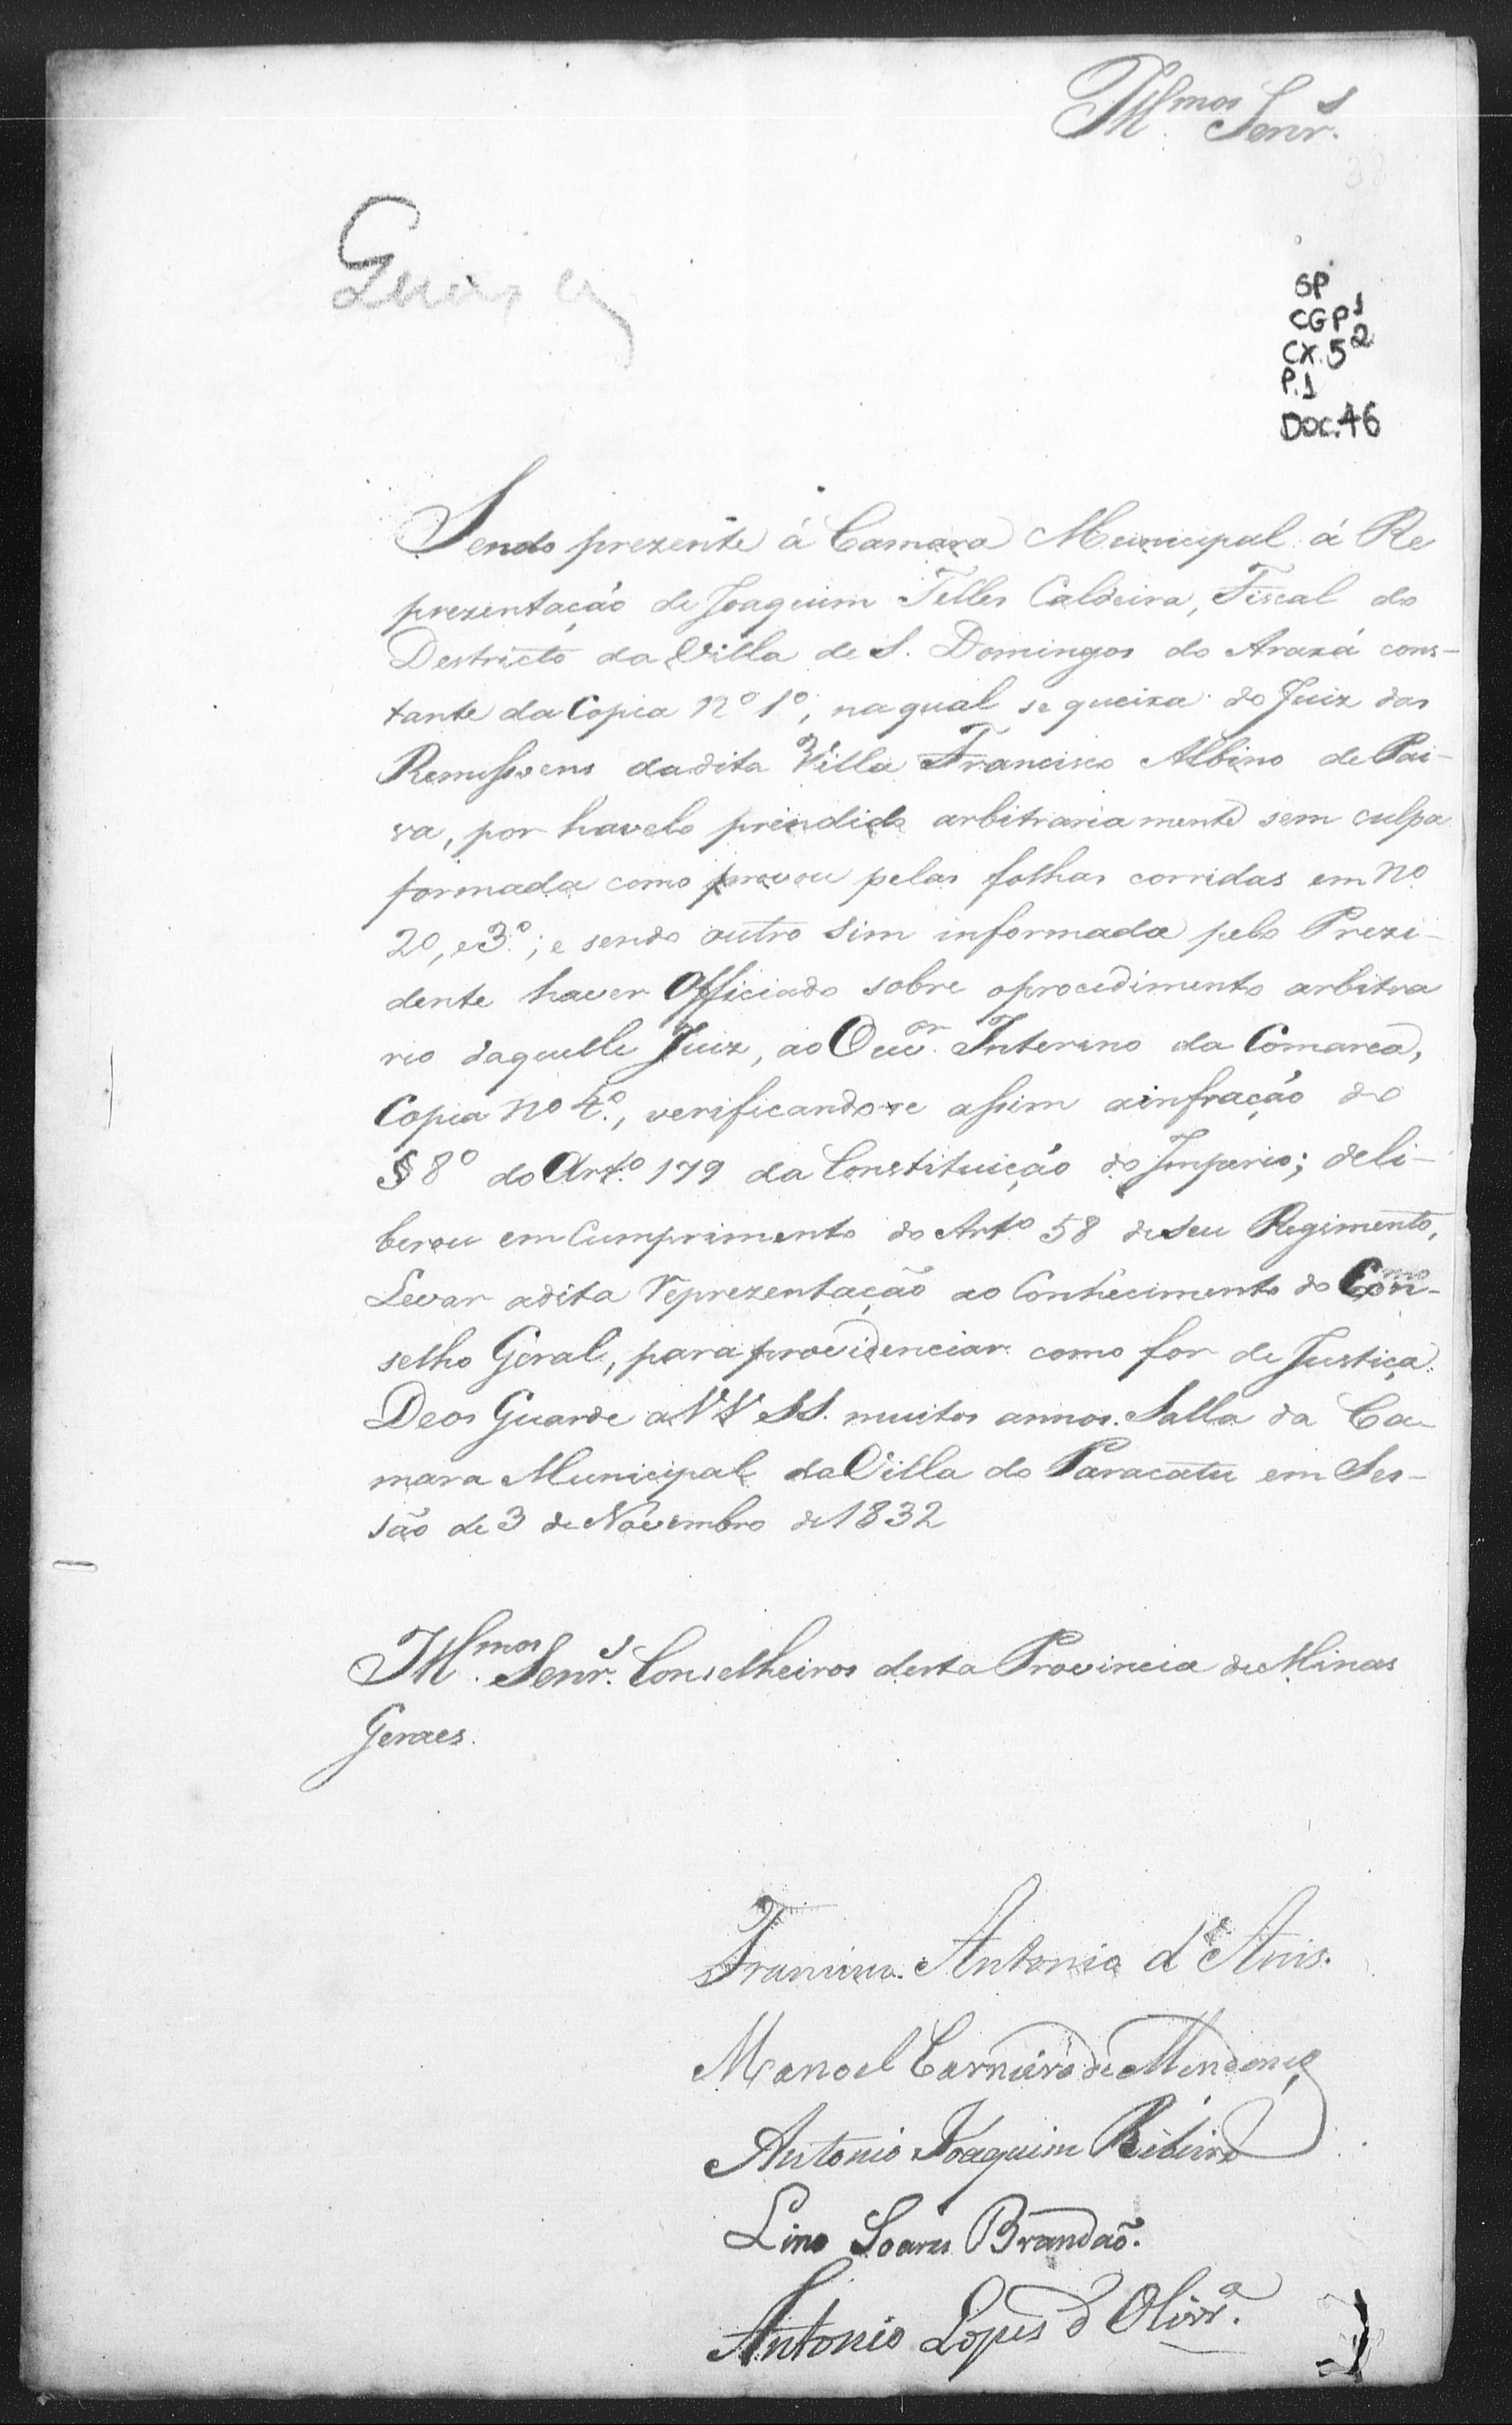 Illmos Senrs
SP
CGP1
CX.52
P.1
DOC.46
Sendo prezente á Camara Municipal á Re
prezentação de Joaquim Telles Caldeira, Fiscal do
Destricto da Villa de S. Domingos do Araxá cons-
tante da Copia No 1o, na qual se queixa do Juiz das
Remissoens da dita Villa Francisco Albino de Pai-
va, por havelo prendido arbitrariamente sem culpa
formada como provou pelas folhas corridas em No
2o, e 3o; e sendo outro sim informada pelo Prezi-
dente haver Officiado sobre o procedimento arbitra
rio daquelle Juiz, ao Ouvor Interino da Comarca,
Copia No 4o, verificando-se assim a infração do
§ 8o do Arto 179 da Constituição do Imperio; deli-
berou em Cumprimento do Arto 58 de seu Regimento,
Levar a dita reprezentação ao Conhecimento do Con-
selho Geral, para providenciar como for de Justiça.
Deos Guarde a VV SS. muitos annos. Salla da Ca-
mara Municipal da Villa do Paracatu em Ses-
são de 3 de Novembro de 1832
Illmos Senrs Conselheiros desta Provincia de Minas
Geraes.
Antonio d'
Manoel Carneiro de Mendonça
Antonio Joaquim Ribeiro
Lino Soares Brandaõ.
Antonio Lopes d'Olivra.